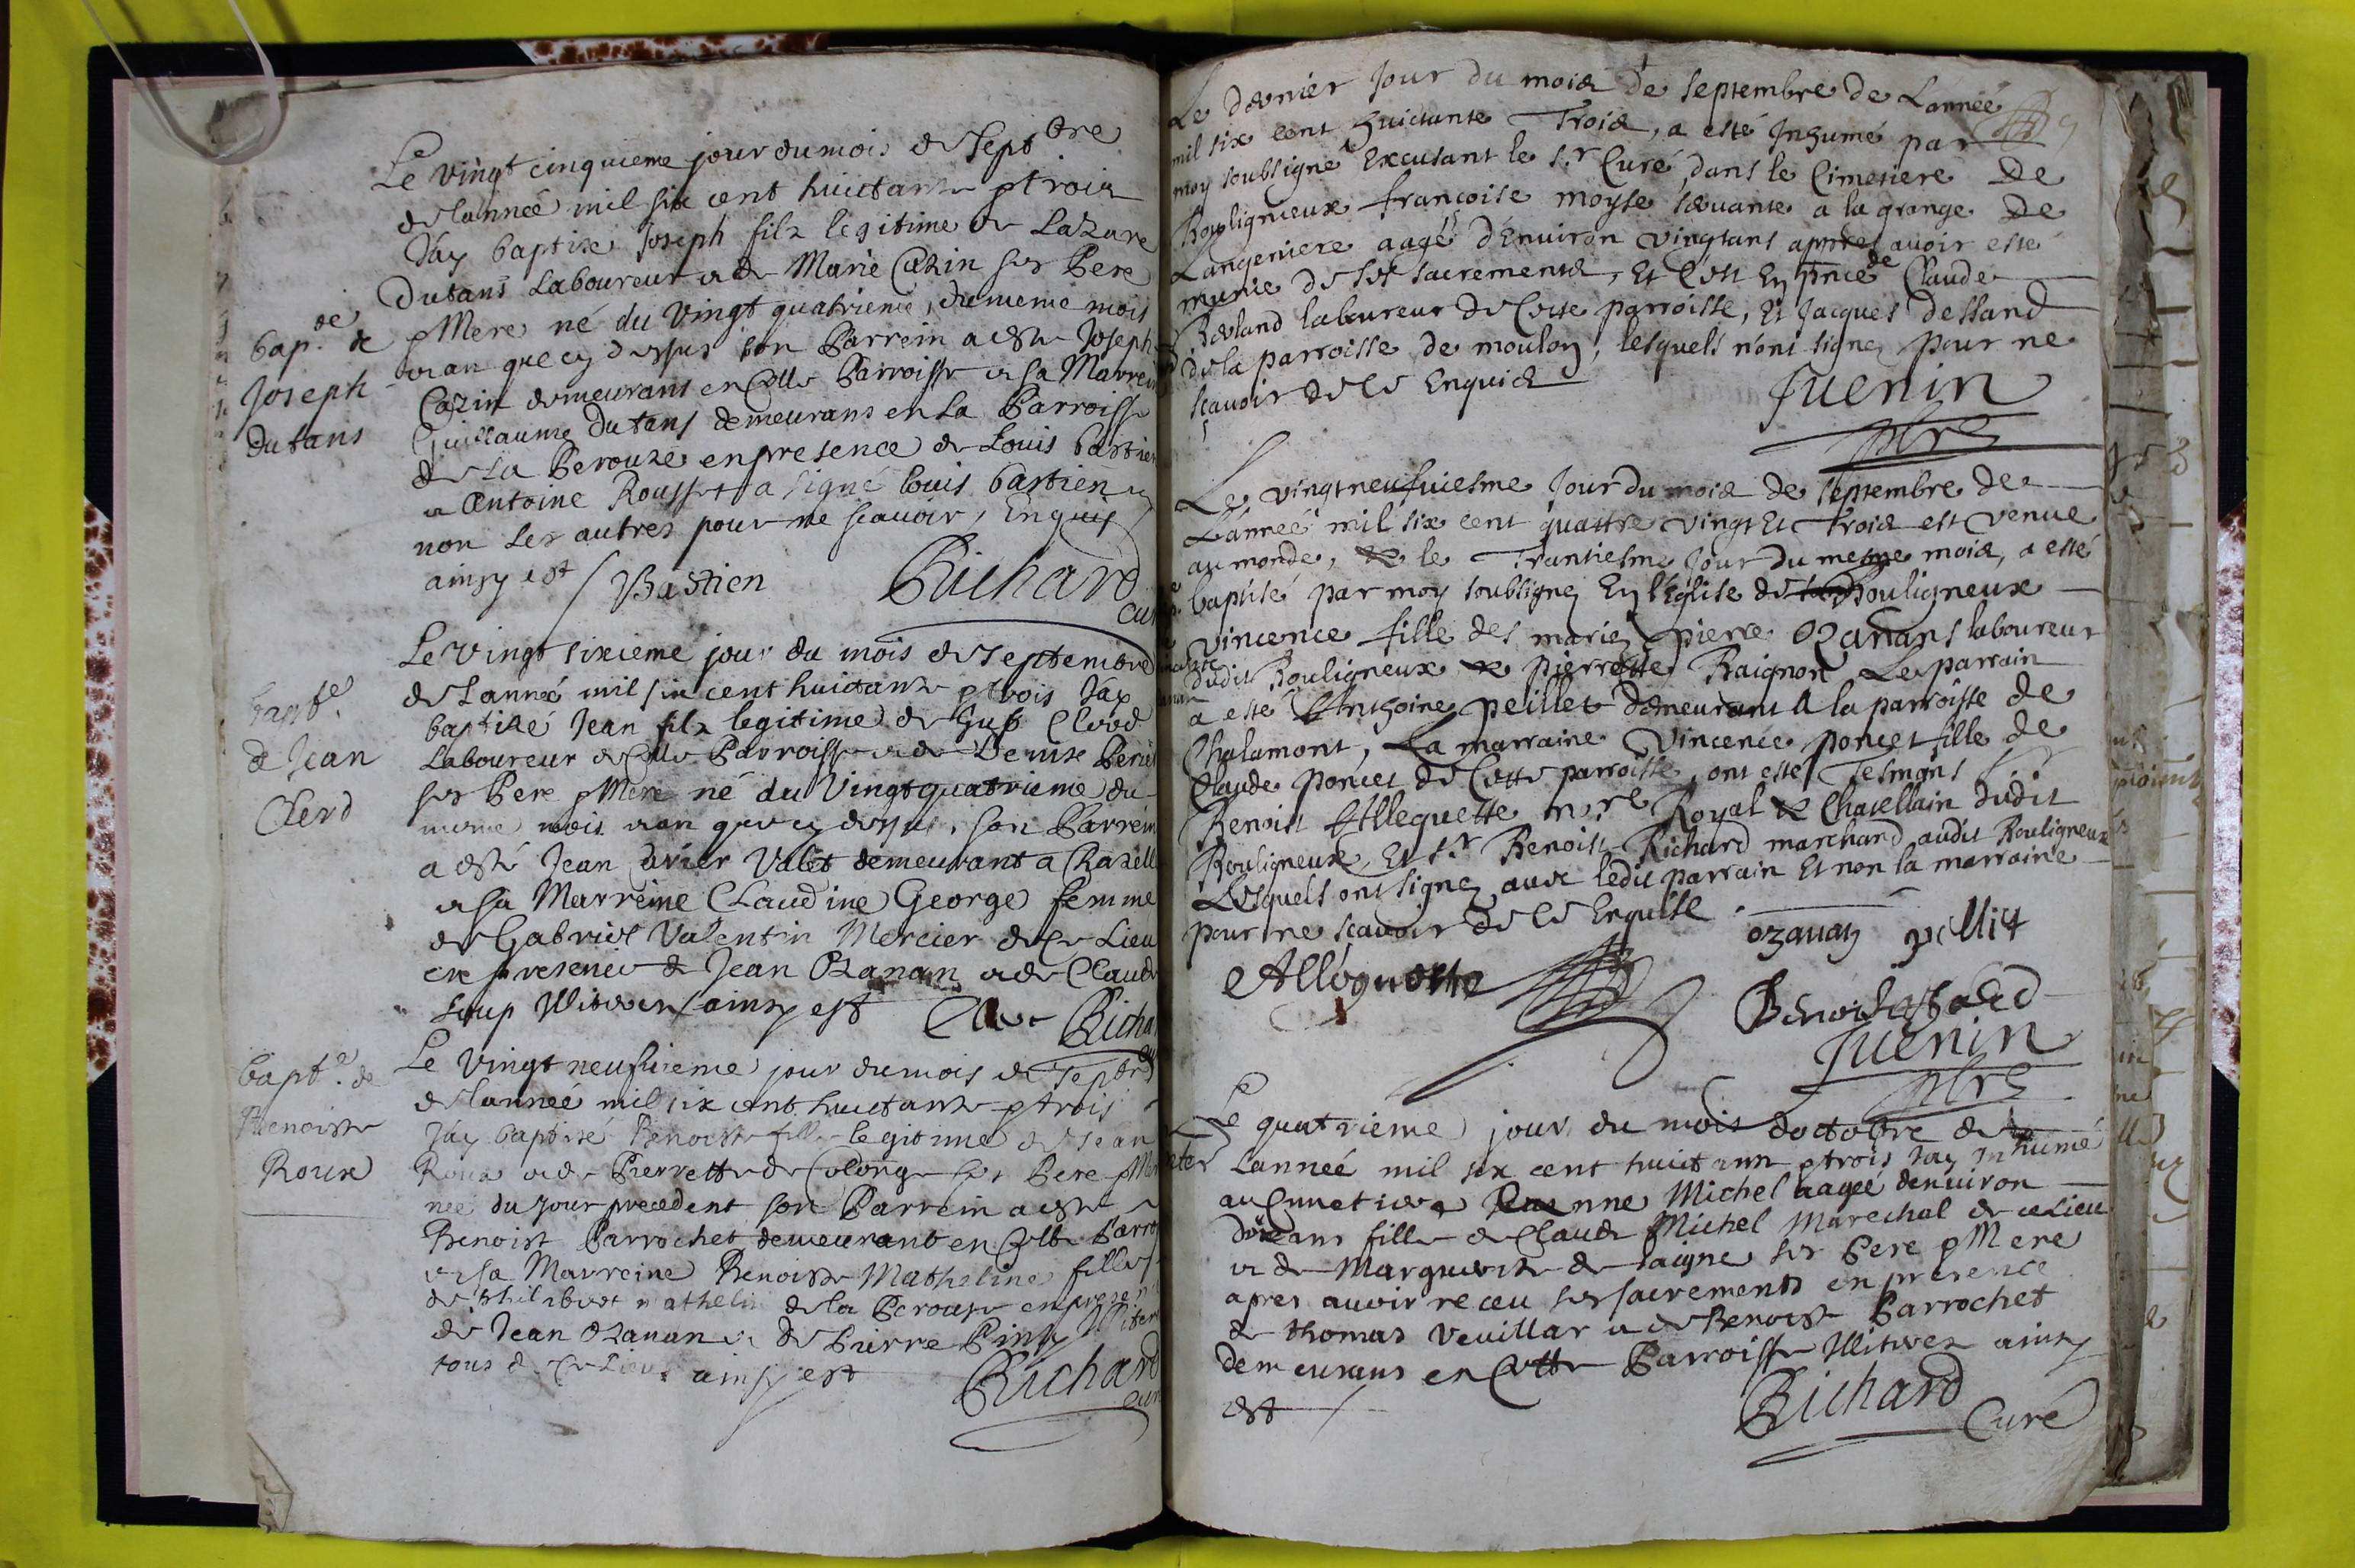 Le vingt cinquieme jour du mois de Septbre
de lannee mil six cent huictante & trois
Jay baptisé Joseph filz legitime de Lazare
Dutans Laboureur & de Marie Cazin ses Pere
& Mere né du vingt quatrieme, du meme mois
& an que cy dessus son Parrein a esté Joseph
Cazin demeurans en Cette Parroisse & sa Marrei
Guillaume Dutans demeurans en La Parroisse
de La Perouze en presence de Louis bastien
& Antoine Rousset a signé louis bastien
non les autres pour ne scavoir, Enquis
ainsy est Bastien Richard
cur
bapt. de
Joseph
dutans
Le vingt sixieme jour du mois de Septembre
de Lannee mil six cent huictante & trois Jay
baptisé Jean filz legitime de Clerd
Laboureur de Cette Parroisse & de Denise
ses Pere & Mere né du Vingt quatrieme du
meme mois & an que cy dessus, son Parrein
a esté Jean Valet demeurant a Chazelle
& sa Marreine Claudine George femme
de Gabriel Valentin Mercier de Ce Lieu
en presence de Jean Ozanan & de Claude
Loup ainsy est Richa
bapte
de Jean
Clerd
Le Vingt neufvieme jour du mois de Septbre
de lannee mil six cent huictante & trois
Jay baptisé Benoiste fille legitime de Jean
Roux & de Pierrette de Colonge ses Pere & Mer
nee du jour precedent son Parrein a esté
Benoist Parrochet demeurant en Cette Parro
& sa Marreine Benoiste Matheline fille
de Philibert mathelin de la Perouse en presen
de Jean Ozanan & de Pierre
tous de Ce Lieu ainsy est Richard
cur
bapte de
Benoiste
Roux
Le dernier Jour du mois de Septembre de Lannée
mil six cent huictante Trois, a esté Inhumé par
moy soubsigné Excusant le sr Curé, dans le Cimetiere De
Bouligneux francoise moyse servante a la grange De
Langeniere aagé d'Environ vingt ans apprès avoir esté
munie de ses sacrements, Et C'est En pnce de Claude
Roland laboureur de Cette parroisse, Et Jacques dessand
de la parroisse de moulon, lesquels n'ont signez pour ne
scavoir de Ce Enquis
Juenin
pbre
Le vingt neufviesme Jour du mois de Septembre de
L'année mil six cent quattre vingt Et Trois est venue
au monde, & le Trantiesme Jour du mesme mois, a esté
baptisé par moy soubsignez En l'Eglise de Bouligneux
Vincence fille des mariez pierre Ozanans laboureur
dudit Bouligneux & pierrette Raignon Le parrain
a esté Anthoine peillet demeurant A la parroisse de
Chalamont, La marraine Vincence poncet fille de
Claude poncet de Cette parroisse, ont esté Tesmoins
Benoist Alleguette nre Royal & Chatellain dudit
Bouligneux, Et sr Benoist Richard marchand audit Bouligneux
Lesquels ont signez avec ledit parrain Et non la marraine
pour ne scavoir de Ce Enquise
ozanan pellict
Alléguette
Benoist
Juenin
pbre
Le quatrieme jour du mois doctobre de
Lannée mil six cent huictante & trois Jay Inhumé
au Cimetiere Michel aagée denviron
ans fille de Claude Michel Marechal de ce Lieu
& de Marguerite de laigne ses Pere & Mere
apres avoir receu ses sacrements en presence
de thomas Veuillar & de Benoist Parrochet
demeurans en Cette Parroisse ainsy
est
Richard
Curé